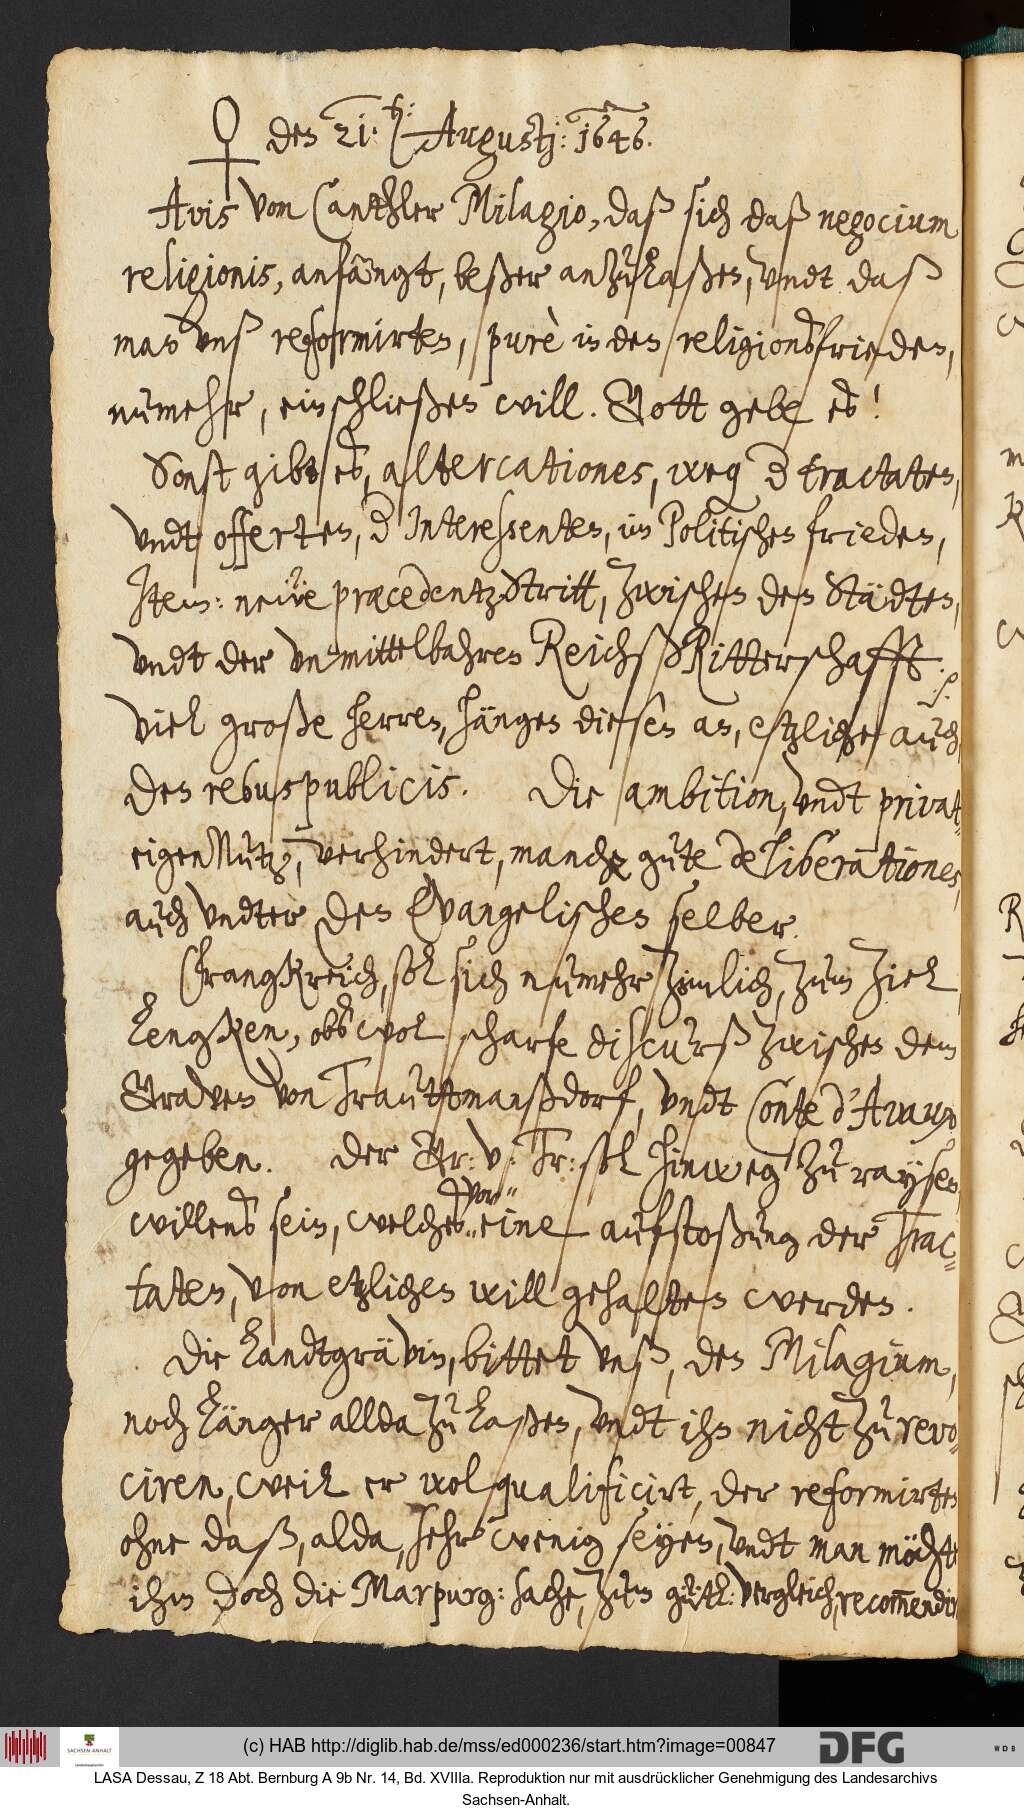 ♀ den 21. h: Augustj: 1646.
Avis vom Cantzler Milagio, daß sich daß negocium
religionis, anfängt, beßer anzulaßen, undt daß
man vnß reformirten, purè in den religionsfrieden,
numehr, einschließen will. Gott gebe es!
Sonst gibt es, altercationes, weg d tractaten,
vndt offerten, d Interessenten, im Politischen frieden,
Item: neẅe præcedentzStritt, zwischen den Städten,
vndt der vnmittelbahren ReichsRitterschafft.
Viel große herren, hängen diesen an, etzliche auch
den rebus publicis. Die ambition, vndt privat-
eigenNutz, verhindert, manche gute deliberationes,
auch vndter den Evangelischen selber.
Frangkreich, sol sich numehr zimlich, zum ziel
lengken, obs wol scharfe discurß zwischen dem
Graven von Trauttmanßdorf, vndt Conte d'Avaux
gegeben. Der Gr: v: Tr: sol hinweg zu raysen,
willens sein, welches vor eine aufstoßung der Trac-
taten, von etzlichen will gehalten werden.
Die Landtgrävin, bittet vnß, den Milagium,
noch länger allda zu laßen, vndt ihn nicht zu revo-
ciren, weil er wol qualificirt, der reformirten
ohne daß, alda, sehr wenig seyen, vndt man möchte
ihm doch die Marpurg: sache, zum gütl: vergleich, recom̅endir
(c) HAB http://diglib.hab.de/mss/ed000236/start.htm?image=00847
SACHSEN-ANHALT
DFG
WDB
LASA Dessau, Z 18 Abt. Bernburg A 9b Nr. 14, Bd. XVIIIa. Reproduktion nur mit ausdrücklicher Genehmigung des Landesarchivs
Sachsen-Anhalt.